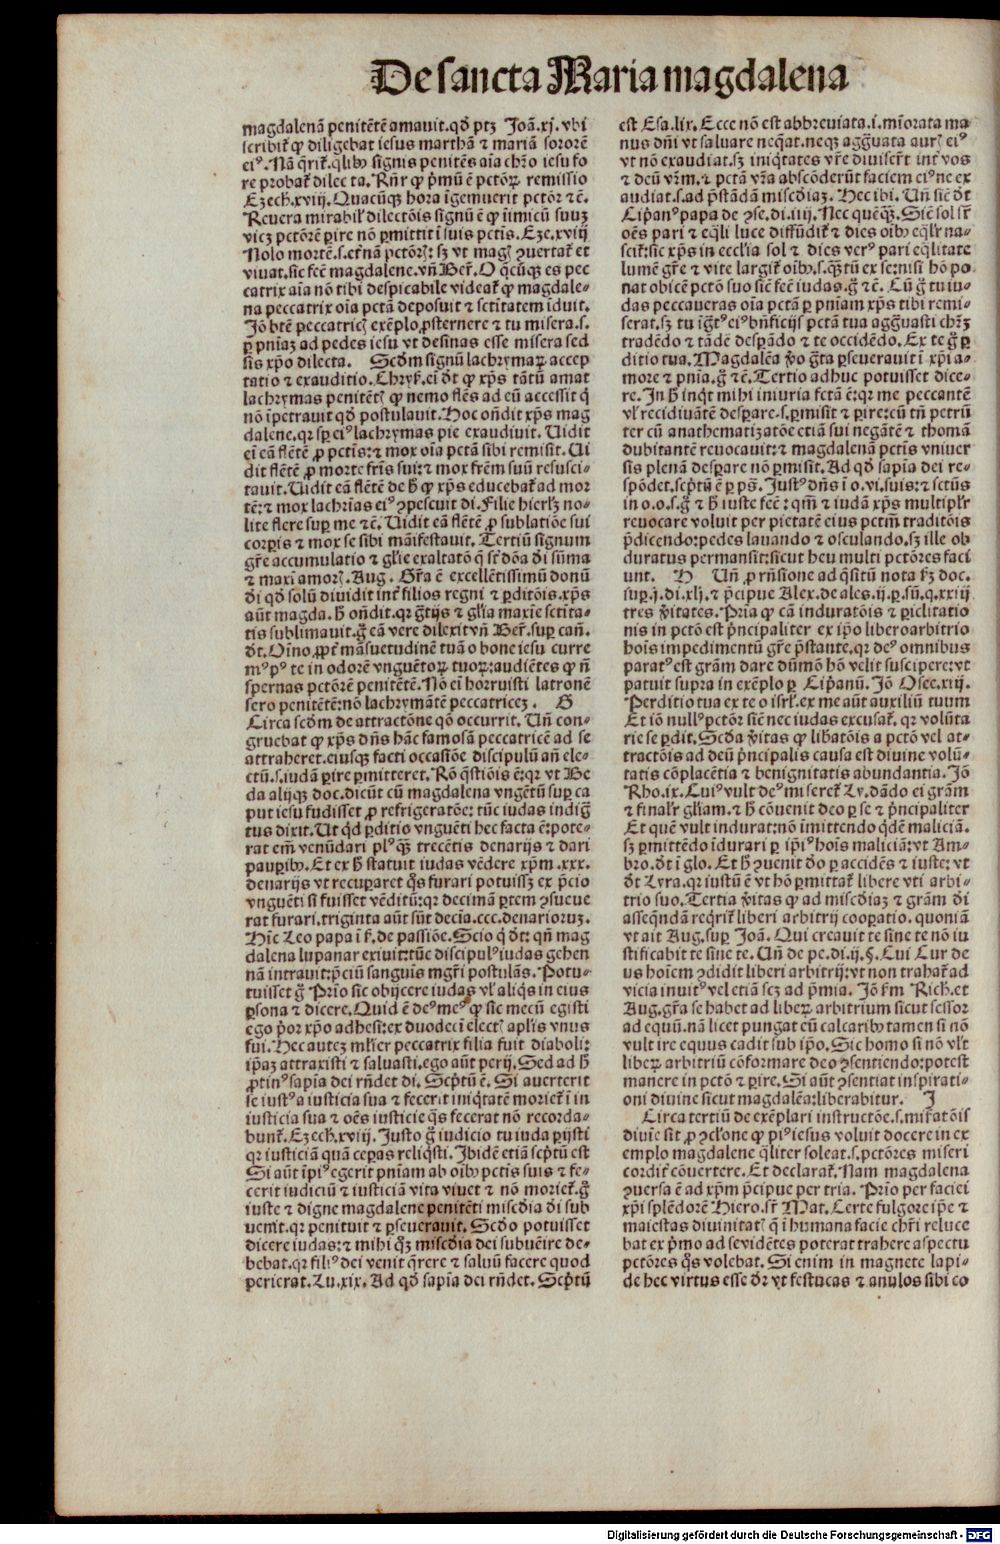 De sancta Maria magdalena
magdalenā penitētē amauit. qð ptꝫ Joā.xj. vbi
scribit̄ ꝙ diligebat iesus marthā ⁊ mariā sororē
eiꝰ. Nā q̄rit̄. qͥlibꝫ signis penitēs aīa chr̄o iesu fo
re probat̄ dilecta. Rn̄r ꝙ pͥmū ē pctōꝝ remissio
Ezech.xviij. Quacūqꝫ hora īgemuerit pctōr ⁊ē.
Reuera mirabil̓ dilectōis signū ē ꝙ īimicū suuꝫ
vicꝫ pctōrē ꝑire nō ꝑmittit ī suis pctis. Eze.xviij
Nolo mortē.s.et̓nā pctōrꝭ: sꝫ vt magꝭ ꝯuertat̄ et
viuat. sic fec̄ magdalene. vn̄ Ber̄. O qͥcūqꝫ es pec
catrix aīa nō tibi despicabile videat̄ ꝙ magdale-
na peccatrix oīa pctā deposuit ⁊ sctītatem īduit.
Jō btē peccatricꝭ exēplo ꝓsternere ⁊ tu misera.s.
ꝑ pniaꝫ ad pedes iesu vt desinas esse misera sed
sis xp̄o dilecta. Scdm signū lachrymaꝝ accep
tatio ⁊ exauditio. Chryſ. ei ðt ꝙ xp̄s tātū amat
lachrymas penitētꝭ ꝙ nemo flēs ad eū accessit qͥ
nō īpetrauit qð postulauit. Hoc on̄dit xp̄s mag
dalene. qr sꝑ eiꝰ lachrymas pie exaudiuit. Uidit
ei eā flētē ꝓ pctis: ⁊ mox oīa pctā sibi remisit. Ui
dit flētē ꝓ morte fr̄is sui: ⁊ mox fr̄em suū resusci-
tauit. Uidit eā flētē de h̄ ꝙ xp̄s educebat̄ ad mor
tē: ⁊ mox lachrīas eiꝰ ꝯpescuit di. Filie hierlꝫ no-
lite flere suꝑ me ⁊ē. Uidit eā flētē ꝓ sublatiōe sui
corꝑis ⁊ mox se sibi māifestauit. Tertiū signum
gr̄e accumulatio ⁊ gl̓ie exaltatō q̄ sr̄ dōa ði sūma
⁊ maxi amorꝭ. Aug. Gr̄a ē excellētissimū donū
ði qð solū diuidit int̓ filios regni ⁊ ꝑditōis. xp̄s
aūt magda. h̄ on̄dit. qr gr̄tijs ⁊ gl̓ia maxīe sctīta-
tis sublimauit. g̊ eā vere dilexit vn̄ Ber̄. suꝑ cān̄.
ðt. Oīno ꝓpt̓ māsuetudinē tuā o bone iesu curre
mꝰ pꝰ te in odorē vnguētoꝝ tuoꝝ: audiētes ꝙ n̄
spernas pctōrē penitētē. Nō ei horruisti latronē
sero penitētē: nō lachrymātē peccatricēꝫ. G
Circa scdm de attractōne qð occurrit. Un̄ con-
gruebat ꝙ xp̄s dn̄s hāc famosā peccatricē ad se
attraheret. eiusqꝫ facti occastōe discipulū an̄ ele-
ctū.s. iudā ꝑire ꝑmitteret. Rō q̄stiōis ē: qr vt Be
da alijqꝫ doc. dicūt cū magdalena vngētū suꝑ ca
put iesu fudisset ꝓ refrigeratōe: tūc iudas indig̊
tus dixit. Ut qͥd ꝑditio vnguēti hec facta ē: pote-
rat em̄ venūdari plꝰ qͣꝫ trecētis denarijs ⁊ dari
pauꝑibꝫ. Et ex h̄ statuit iudas vēdere xp̄m .xxx.
denarijs vt recuꝑaret q̊s furari potuissꝫ ex p̄cio
vnguēti si fuisset vēditū: qr decimā ꝑtem ꝯsueue
rat furari. triginta aūt sūt decia. ccc. denarioruꝫ.
Hīc Leo papa ī f. de passiōe. Scio qͥ ðt: qn̄ mag
dalena lupanar exiuit: tūc discipulꝰ iudas gehen
nā intrauit: p̄ciū sanguis mgr̄i postulās. Potu-
tuisset g̊ Prīo sic obijcere iudas vl̓ aliqͥs in eius
ꝑsona ⁊ dicere. Quid ē deꝰ meꝰ ꝙ sic mecū egisti
ego pͥor xp̄o adhesi: ex duodecī electꝭ apl̓is vnus
fui. Hec auteꝫ ml̓ier peccatrix filia fuit diaboli:
ip̄aꝫ attraxisti ⁊ saluasti. ego aūt perij. Sed ad h̄
ꝓtinꝰ sapīa dei rn̄det di. Scp̄tū ē. Si auerterit
se iustꝰ a iusticia sua ⁊ fecerit iniqͥtatē moriet̄ ī in
iusticia sua ⁊ oēs iusticie q̄s fecerat nō recorda-
bunt̄. Ezech.xviij. Justo g̊ iudicio tu iuda ꝑijsti
qr iusticiā quā ceꝑas reliqͥsti. Ibidē etiā scp̄tū est
Si aūt īpiꝰ egerit pniam ab oībꝫ pctis suis ⁊ fe-
cerit iudiciū ⁊ iusticiā vita viuet ⁊ nō moriet̄. g̊
iuste ⁊ digne magdalene penitēti misc̄dia ði sub
uenīt. qr penituit ⁊ ꝑseuerauit. Scðo potuisset
dicere iudas: ⁊ mihi qͦꝫ misc̄dia dei subuēire de-
bebat. qr filiꝰ dei venit q̄rere ⁊ saluū facere quod
perierat. Lu.xix. Ad qð sapīa dei rn̄det. Scp̄tū
est Esa.lix. Ecce nō est abbreuiata.i. mīorata ma
nus dn̄i vt saluare neq̄at. neqꝫ aggͣuata aurꝭ eiꝰ
vt nō exaudiat. sꝫ iniqͥtates vr̄e diuiser̄t int̓ vos
⁊ deū vr̄m. ⁊ pctā vr̄a abscōderūt faciem eiꝰ ne ex
audiat.s. ad p̄stādā misc̄diaꝫ. Hec ibi. Un̄ sic ðt
Cipͥanꝰ papa de ꝯse.di.iiij. Nec quēqͣꝫ. Sic sol sr̄
oēs pari ⁊ eq̄li luce diffūdit̄ ⁊ dies oībꝫ eq̄lr na-
scit̄: sic xp̄s in eccl̓ia sol ⁊ dies verꝰ pari eq̄litate
lumē gr̄e ⁊ vite largit̄ oībꝫ.s. qͣꝫtū ex se: nisi hō po
nat obicē pctō suo sic fec̄ iudas. g̊ ⁊ē. Cū g̊ tu iu-
das peccaueras oīa pctā ꝑ pniam xp̄s tibi remi-
serat. sꝫ tu īgͣtꝰ eiꝰ bn̄ficijs pctā tua aggͣuasti chr̄ꝫ
tradēdo ⁊ tādē desꝑādo ⁊ te occidēdo. Ex te g̊ ꝑ
ditio tua. Magdalēa v̊o gͣta ꝑseuerauit ī xp̄i a-
more ⁊ pnīa. g̊ ⁊ē. Tertio adhuc potuisset dice-
re. In h̄ inqͥt mihi iniuria fctā ē: qr me peccantē
vl̓ recidiuātē desꝑare.s. ꝑmisit ⁊ ꝑire: cū tn̄ petrū
ter cū anathematizatōe etiā sui negātē ⁊ thomā
dubitantē reuocauit: ⁊ magdalenā pctis vniuer
sis plenā desꝑare nō ꝑmisit. Ad qð sapīa dei re-
spōdet. scp̄tū ē ꝑ ps̄. Justꝰ dn̄s ī o.vi. suis: ⁊ sctūs
in o.o.s. g̊ ⁊ h̄ iuste fec̄: qm̄ ⁊ iudā xp̄s multipl̓r
reuocare voluit per pietatē eius pctm̄ traditōis
p̄dicendo: pedes lauando ⁊ osculando. sꝫ ille ob
duratus permansit: sicut heu multi pctōres faci
unt. H Un̄ ꝓ rn̄sione ad q̄sitū nota ẜꝫ doc.
suꝑ.j.di.xlj. ⁊ p̄cipue Alex. de ales.ij.ꝑ.sū.q.xxiij
tres v̓itates. Prīa ꝙ cā induratōis ⁊ ꝑiclitatio
nis in pctō est pͥncipaliter ex ip̄o libero arbitrio
hoīs impedimentū gr̄e p̄stante. qr deꝰ omnibus
paratꝰ est grām dare dūmō hō velit suscipere: vt
patuit supra in exēplo ꝑ Cipͥanū. Jō Osee.xiij.
Perditio tua ex te o isrl̓. ex me aūt auxiliū tuum
Et iō nullꝰ pctōr sic̄ nec iudas excusat̄. qr volūta
rie se ꝑdit. Scða v̓itas ꝙ lib̓atōis a pctō vel at-
tractōis ad deū pͥncipalis causa est diuine volū-
tatis cōplacētia ⁊ benignitatis abundantia. Jō
Rho.ix. Cuiꝰ vult deꝰ miseret̄ Ly. dādo ei grām
⁊ final̓r gl̓iam. ⁊ h̄ cōuenit deo ꝑ se ⁊ pͥncipaliter
Et quē vult indurat: nō īmittendo qͥdē maliciā.
sꝫ ꝑmittēdo īdurari ꝑ ip̄iꝰ hoīs maliciā: vt Am-
bro. ðt ī glo. Et h̄ ꝯuenit ðo ꝑ accidēs ⁊ iuste: vt
ðt Lyra. qr iustū ē vt hō ꝑmittat̄ libere vti arbi-
trio suo. Tertia v̓itas ꝙ ad misc̄diaꝫ ⁊ grām ði
asseqͥndā reqͥrit̄ liberi arbitrij cooꝑatio. quoniā
vt ait Aug. suꝑ Joā. Qui creauit te sine te nō iu
stificabit te sine te. Un̄ de pe.di.ij.§. Cui Cur de
us hoīem ꝯdidit liberi arbitrij: vt non trahat̄ ad
vicia inuitꝰ vel etiā scꝫ ad pͥmia. Jō ẜm Rich. et
Aug. gr̄a se habet ad liberꝝ arbitrium sicut sessor
ad equū. nā licet pungat eū calcaribꝫ tamen si nō
vult ire equus cadit sub ip̄o. Sic homo si nō vl̓t
liberꝝ arbitriū cōformare deo ꝯsentiendo: potest
manere in pctō ⁊ ꝑire. Si aūt ꝯsentiat inspirati-
oni diuine sicut magdalēa: liberabitur. J
Circa tertiū de exēplari instructōe.s. mīratōis
diuīe sit ꝓ ꝯcl̓one ꝙ piꝰ iesus voluit docere in ex
emplo magdalene qͣliter soleat.s. pctōres miseri
cordit̓ cōuertere. Et declarat̄. Nam magdalena
ꝯuersa ē ad xp̄m p̄cipue per tria. Prīo per faciei
xp̄i splēdorē Hiero. sr̄ Mat. Certe fulgore ip̄e ⁊
maiestas diuinitatꝭ q̄ ī humana facie chr̄i reluce
bat ex pͥmo ad se vidētes poterat trahere aspectu
pctōres q̊s volebat. Si enim in magnete lapi-
de hec virtus esse ðr vt festucas ⁊ anulos sibi co
Digitalisierung gefördert durch die Deutsche Forschungsgemeinschaft - DFG